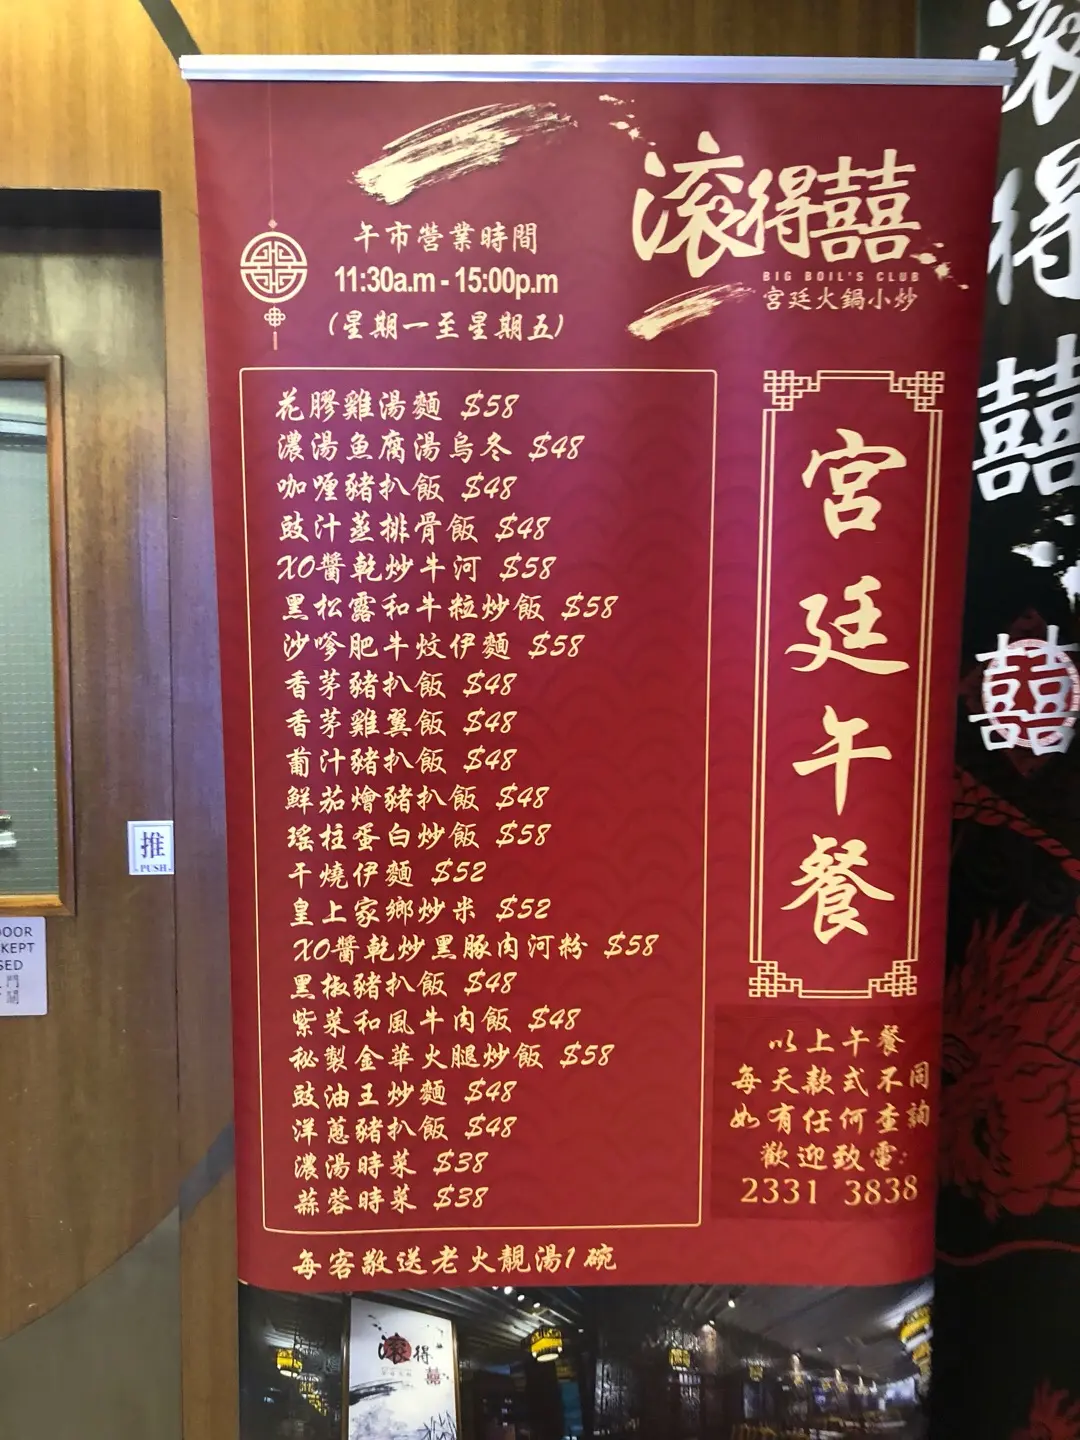 午市營業時間
11:30a.m - 15:00p.m
(星期一至星期五)
滾得囍
BIG BOIL'S CLUB
宮廷火鍋小炒
花膠雞湯麵 $58
濃湯魚腐湯烏冬 $48
咖喱豬扒飯 $48
豉汁蒸排骨飯 $48
XO醬乾炒牛河 $58
黑松露和牛粒炒飯 $58
沙嗲肥牛炆伊麵 $58
香茅豬扒飯 $48
香茅雞翼飯 $48
葡汁豬扒飯 $48
鮮茄燴豬扒飯 $48
瑤柱蛋白炒飯 $58
干燒伊麵 $52
皇上家鄉炒米 $52
XO醬乾炒黑豚肉河粉 $58
黑椒豬扒飯 $48
紫菜和風牛肉飯 $48
秘製金華火腿炒飯 $58
豉油王炒麵 $48
洋蔥豬扒飯 $48
濃湯時菜 $38
蒜蓉時菜 $38
每客敬送老火靚湯1碗
宮廷午餐
以上午餐
每天款式不同
如有任何查詢
歡迎致電:
2331 3838
滾得囍
囍
推
PUSH
DOOR
KEPT
門
滾得囍